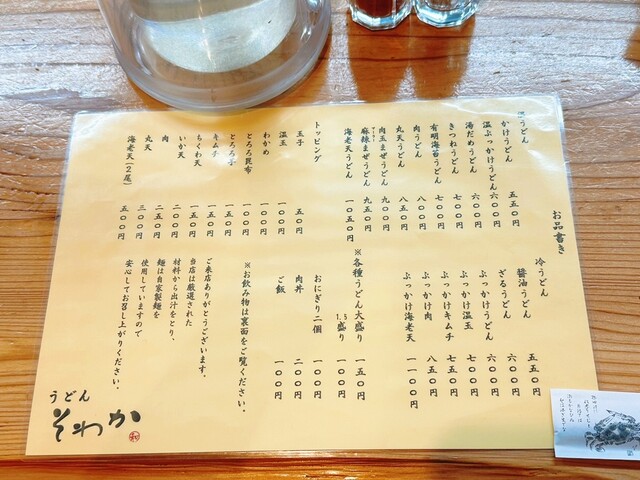 お品書き
温うどん
かけうどん 五五〇円
温ぶっかけうどん 六〇〇円
湯だめうどん 六〇〇円
きつねうどん 七〇〇円
有明海苔うどん 七〇〇円
肉うどん 八〇〇円
丸天うどん 八五〇円
肉玉まぜうどん 九〇〇円
麻辣まぜうどん 九五〇円
海老天うどん 一〇五〇円
トッピング
玉子 五〇円
温玉 一〇〇円
わかめ 一〇〇円
とろろ昆布 一〇〇円
とろろ芋 一五〇円
キムチ 一五〇円
ちくわ天 一五〇円
いか天 二〇〇円
肉 二五〇円
丸天 三〇〇円
海老天(2尾) 五〇〇円
冷うどん
醤油うどん 五五〇円
ざるうどん 六〇〇円
ぶっかけうどん 六〇〇円
ぶっかけ温玉 七五〇円
ぶっかけキムチ 七五〇円
ぶっかけ肉 八五〇円
ぶっかけ海老天 一一〇〇円
※各種うどん大盛り 一五〇円
1.5盛り 一〇〇円
おにぎり二個 一〇〇円
肉丼 二〇〇円
ご飯 一〇〇円
※お飲み物は裏面をご覧ください。
ご来店ありがとうございます。
当店は厳選された
材料から出汁をとり、
麺は自家製麺を
使用していますので
安心してお召し上がりください。
うどん
そわか